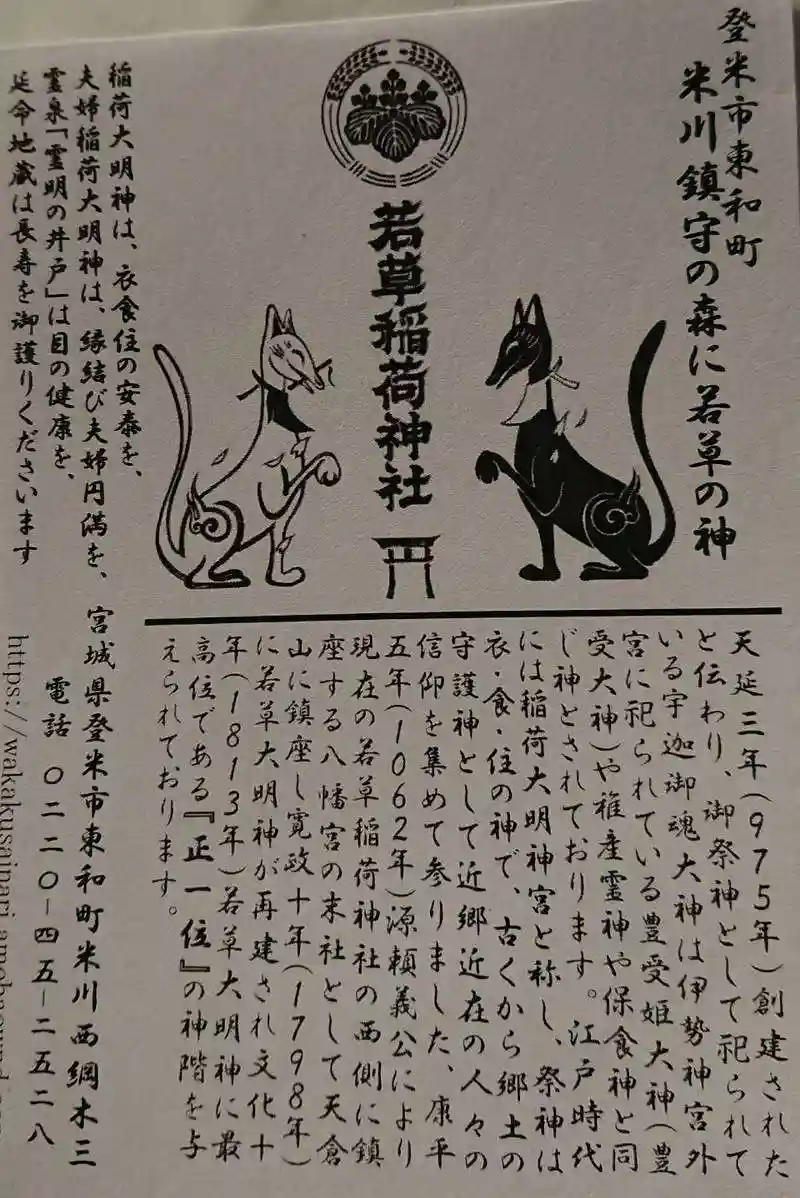 登米市東和町
米川鎮守の森に若草の神
若草稲荷神社
稲荷大明神は、衣食住の安泰を、
夫婦稲荷大明神は、縁結び夫婦円満を、
霊泉「霊明の井戸」は目の健康を、
延命地蔵は長寿を御護りくださいます
天延三年(975年)創建された
と伝わり、御祭神として祀られて
いる宇迦御魂大神は伊勢神宮外
宮に祀られている豊受姫大神(豊
受大神)や稚産霊神や保食神と同
じ神とされております。江戸時代
には稲荷大明神宮と称し、祭神は
衣・食・住の神で、古くから郷土の
守護神として近郷近在の人々の
信仰を集めて参りました、康平
五年(1062年)源頼義公により
現在の若草稲荷神社の西側に鎮
座する八幡宮の末社として天倉
山に鎮座し寛政十年(1798年)
に若草大明神が再建され文化十
年(1813年)若草大明神に最
高位である『正一位』の神階を与
えられております。
宮城県登米市東和町米川西綱木三
電話 〇二二〇－四五－二五二八